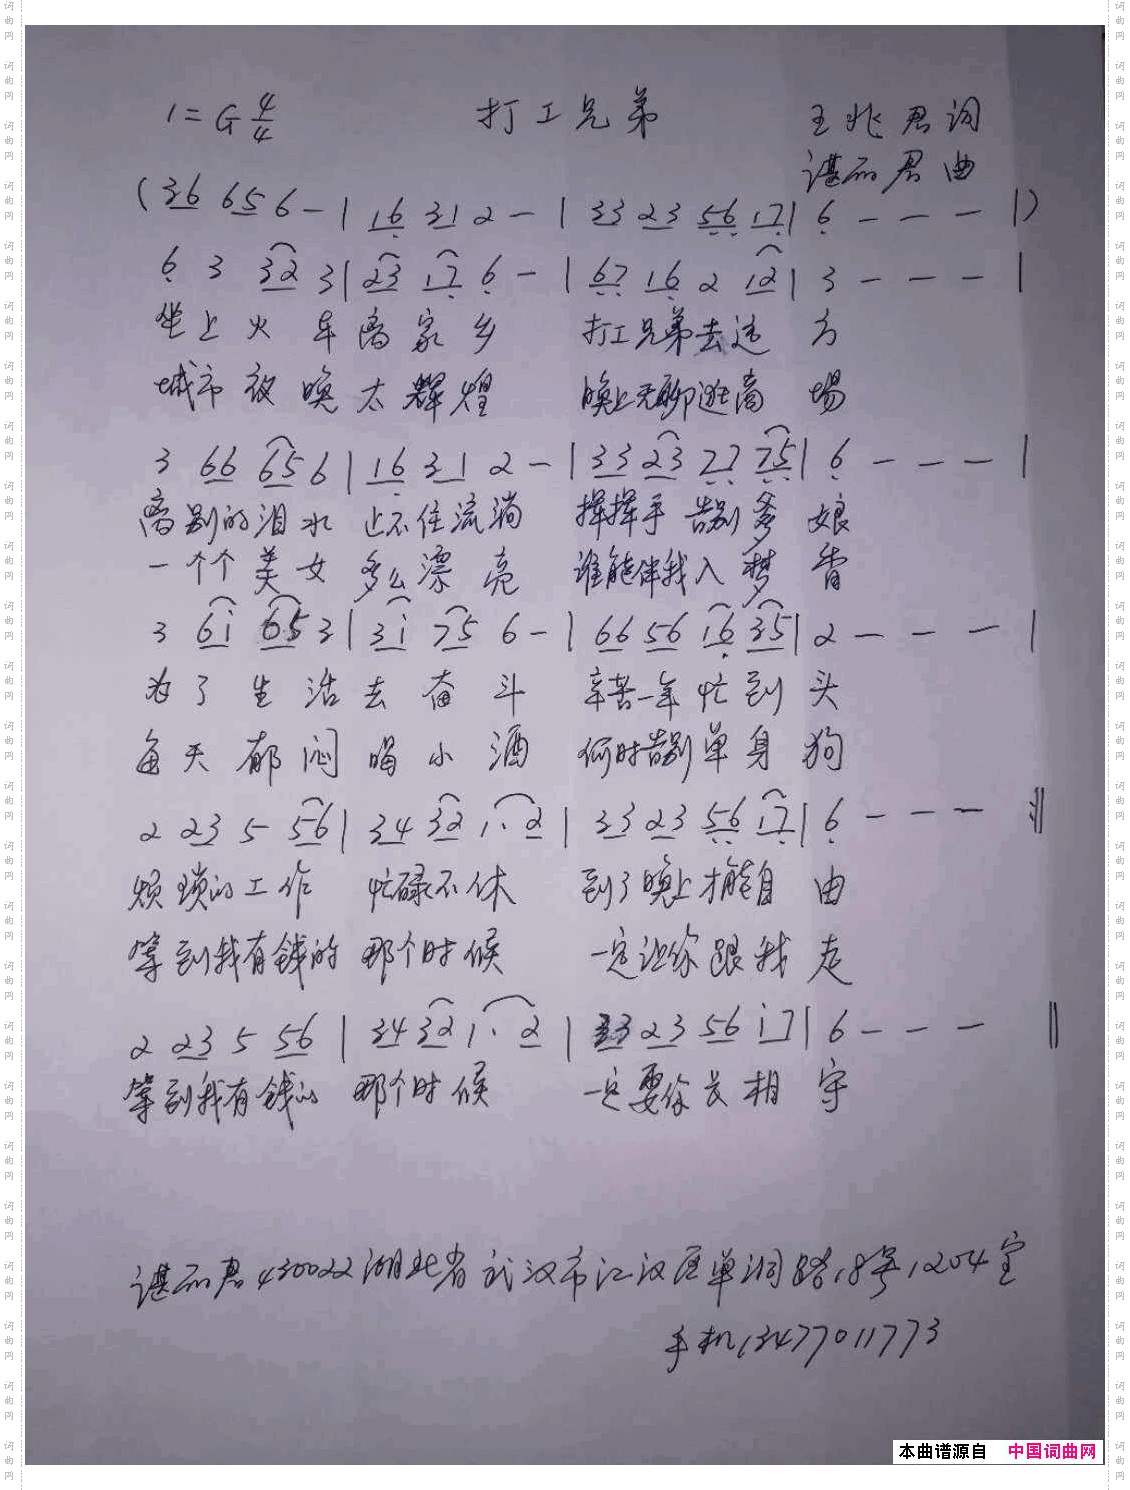 1=G 4/4 打工兄弟 王兆君词
谌丽君曲
(36 65 6 - | 16 31 2 - | 33 23 56 17 | 6 - - - |)
6 3 32 3 | 23 17 6 - | 67 16 2 12 | 3 - - - |
坐上火车离家乡 打工兄弟去远方
城市夜晚太辉煌 晚上无聊逛商場
3 66 65 6 | 16 31 2 - | 33 23 77 75 | 6 - - - |
离别的泪水 止不住流淌 挥挥手 告别爹娘
一个个美女 多么漂亮 谁能伴我入梦香
3 6i 65 3 | 3i 75 6 - | 66 56 16 35 | 2 - - - |
为了生活去奋斗 辛苦一年忙到头
每天郁闷喝小酒 何时告别单身狗
2 23 5 56 | 34 32 1· 2 | 33 23 56 17 | 6 - - - :||
烦琐的工作 忙碌不休 到了晚上才能自由
等到我有钱的 那个时候 一定让你跟我走
2 23 5 56 | 34 32 1· 2 | 33 23 56 i7 | 6 - - - ||
等到我有钱的 那个时候 一定要你长相守
谌丽君430022湖北省武汉市江汉区单洞路18号1204室
手机13477011773
本曲谱源自 中国词曲网